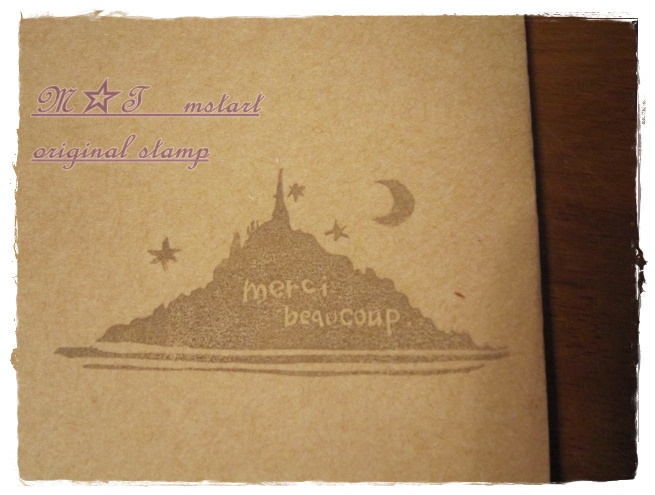 M☆T mstart
original stamp
merci
beaucoup.